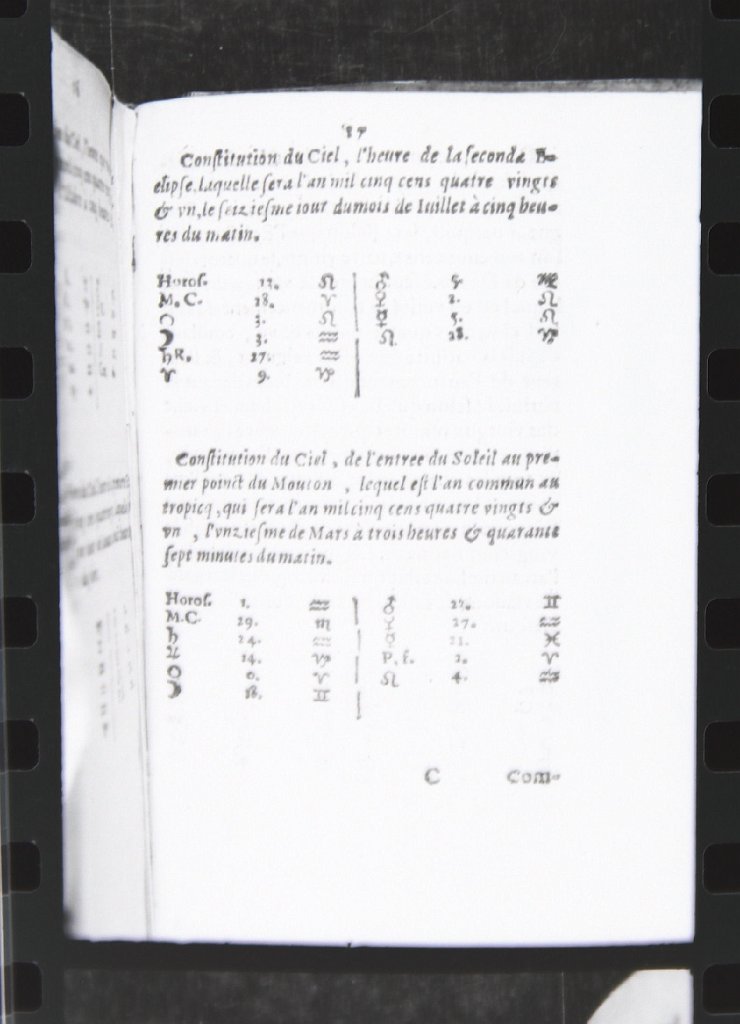 17
Conſtitution du Ciel, l'heure de la ſeconde E-
clipſe, laquelle ſera l'an mil cinq cens quatre vingts
& vn, le ſeizieſme iour du mois de Iuillet à cinq heu-
res du matin.
Horoſ. ♌ | ♂ 9.
M. C. 18. ♈ | ♀ 2. ♌
3. ♌ | ☿ 5. ♌
☽ 3. ♒ | ☊ 28. ♑
♄ R. 27. ♒
9. ♑
Conſtitution du Ciel, de l'entree du Soleil au pre-
mier poinct du Mouton, lequel eſt l'an commun au
tropicq, qui ſera l'an mil cinq cens quatre vingts &
vn, l'vnzieſme de Mars à trois heures & quarante
ſept minutes du matin.
Horoſ. 1. ♒ | ♂ ♊
M. C. 29. ♏ | ♀ 27. ♒
♄ 24. ♒ | ☿ 21. ♓
♃ 14. ♑ | P. f. 2. ♈
0. ♈ | ☊ 4. ♒
☽ 18. ♊
C Com-